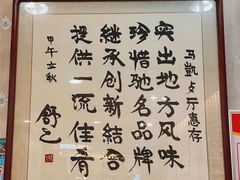 马凯文亍惠存
突出地方风味
珍惜驰名品牌
继承创新结合
提供一流佳肴
甲午立秋
舒乙